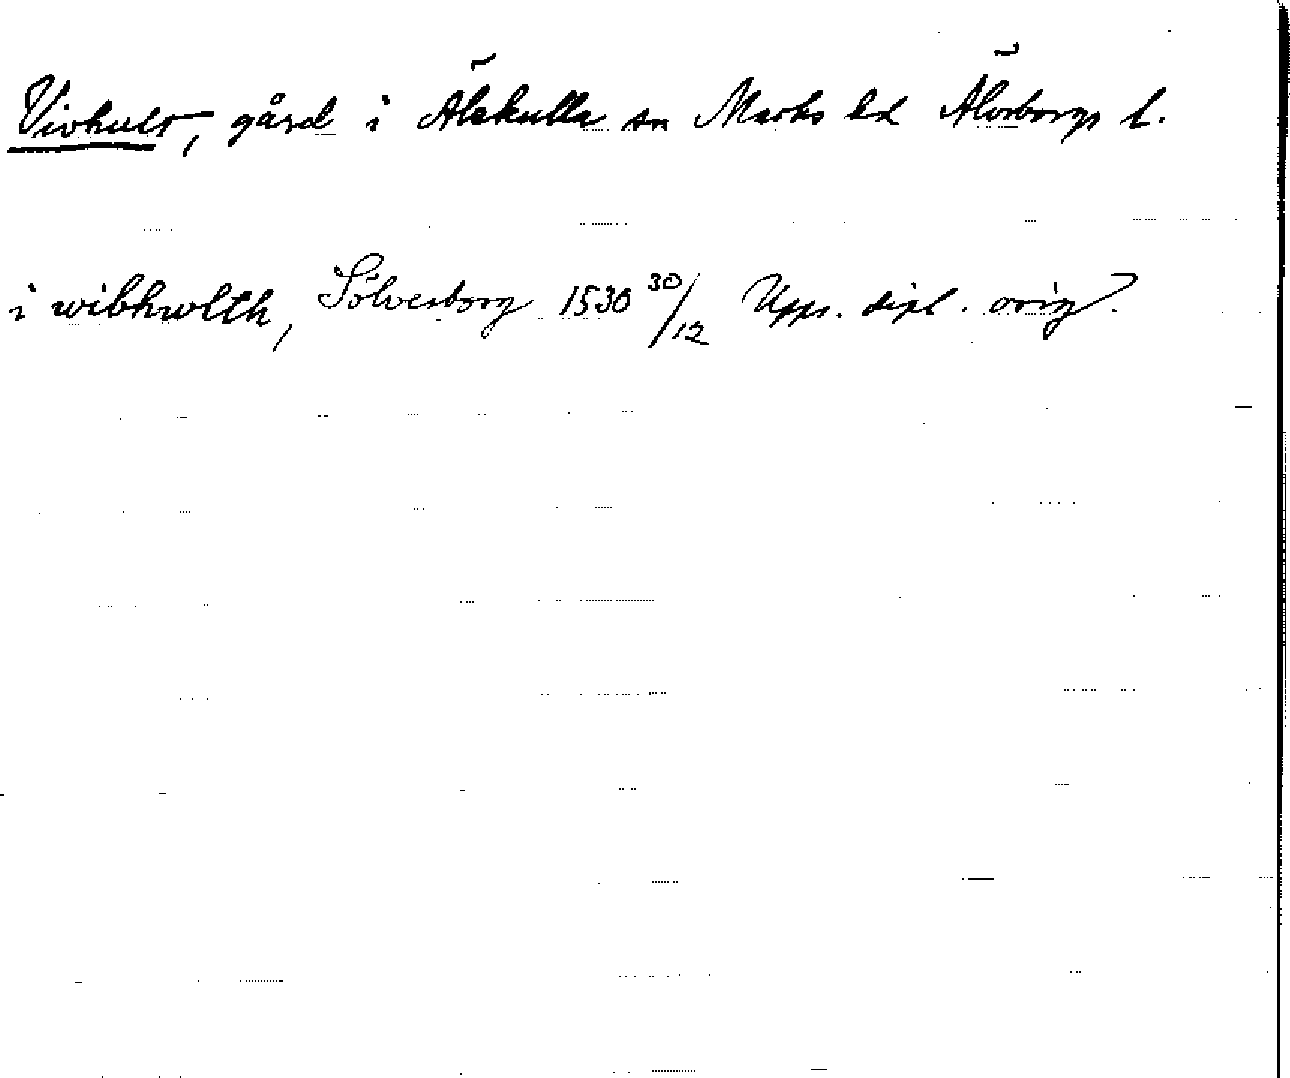 Vivhult, gård i Älekulla sn Marks hd Älvsborgs l.
i wibhwlth, Sölvesborg 1530 30/12 Upps. dipl. orig.